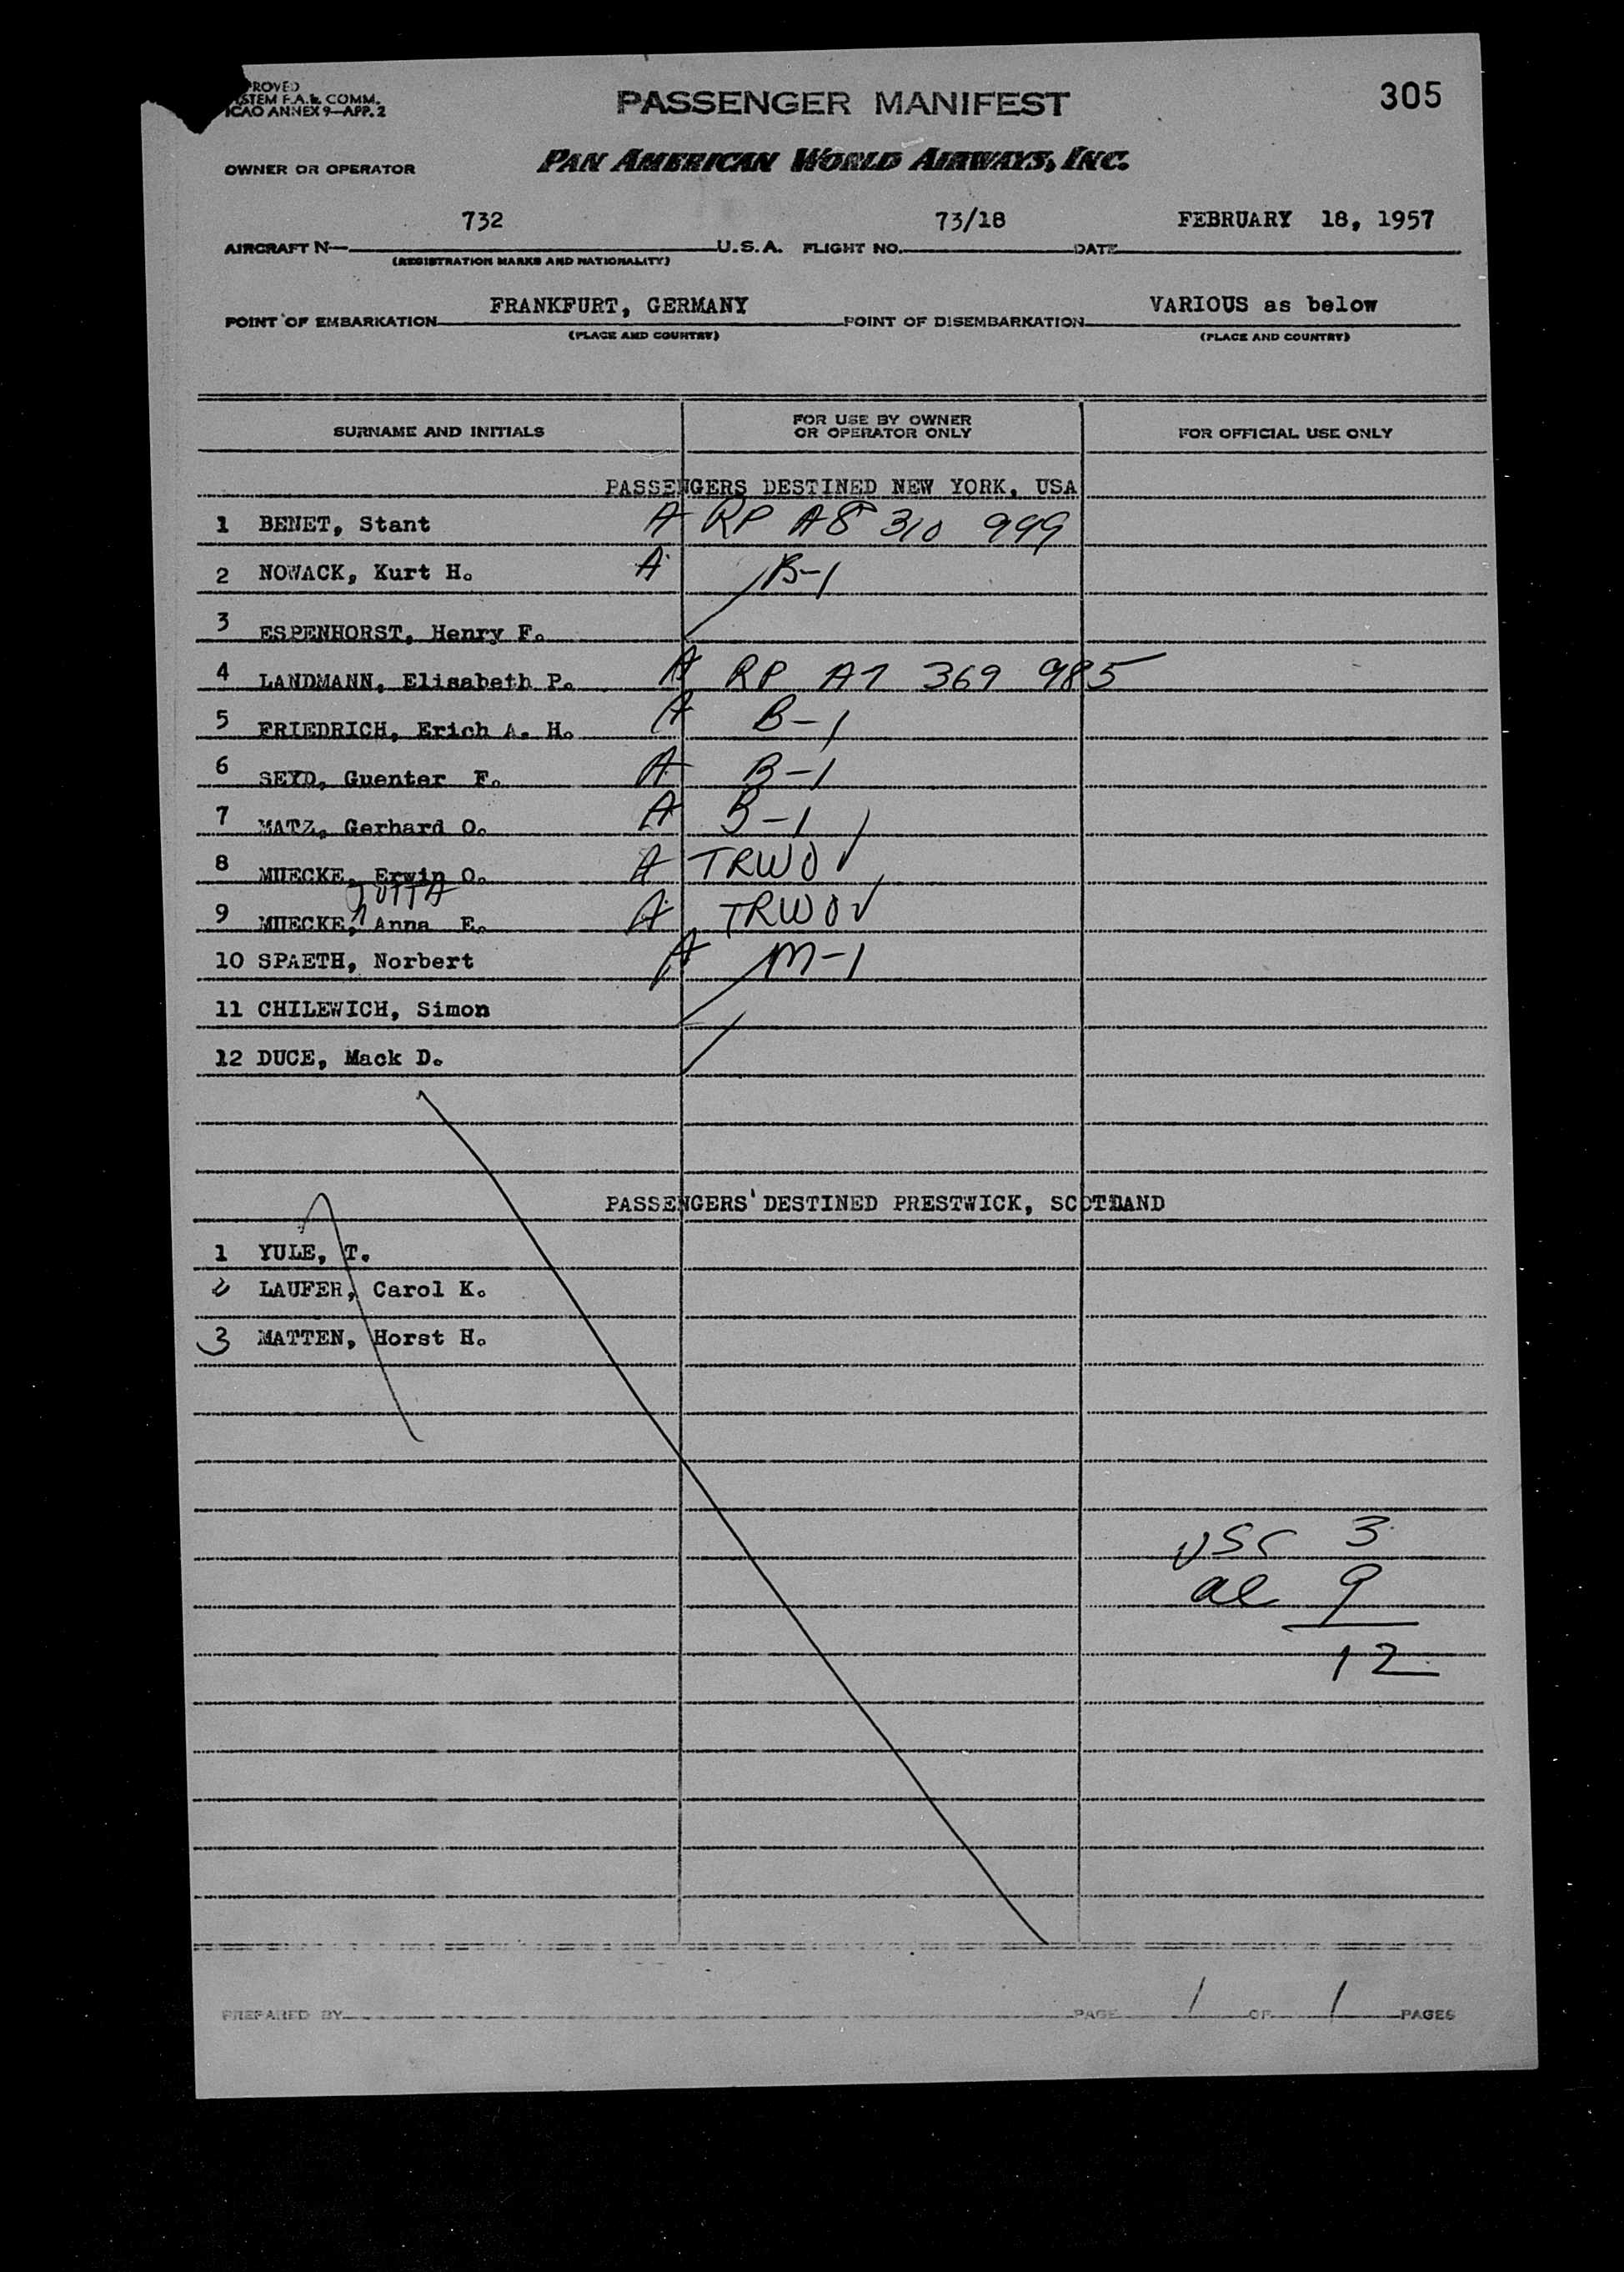 PROVED
YSTEM F.A.& COMM.
ICAO ANNEX 9—APP. 2
PASSENGER MANIFEST
305
OWNER OR OPERATOR
PAN AMERICAN WORLD AIRWAYS, INC.
732 73/18 FEBRUARY 18, 1957
AIRCRAFT N— U.S.A. FLIGHT NO. DATE
(REGISTRATION MARKS AND NATIONALITY)
FRANKFURT, GERMANY VARIOUS as below
POINT OF EMBARKATION POINT OF DISEMBARKATION
(PLACE AND COUNTRY) (PLACE AND COUNTRY)
SURNAME AND INITIALS FOR USE BY OWNER OR OPERATOR ONLY FOR OFFICIAL USE ONLY
PASSENGERS DESTINED NEW YORK, USA
1 BENET, Stant A RP A8 310 999
2 NOWACK, Kurt H. A B-1
3 ESPENHORST, Henry F.
4 LANDMANN, Elisabeth P. A RP A7 369 985
5 FRIEDRICH, Erich A. H. A B-1
6 SEYD, Guenter F. A B-1
7 MATZ, Gerhard O. A B-1
8 MUECKE, Erwin O. A TRWOV
JUTTA
9 MUECKE, Anna E. A TRWOV
10 SPAETH, Norbert A M-1
11 CHILEWICH, Simon
12 DUCE, Mack D.
PASSENGERS DESTINED PRESTWICK, SCOTLAND
1 YULE, T.
2 LAUFER, Carol K.
3 MATTEN, Horst H.
USC 3
al 9
12
PREPARED BY PAGE 1 OF 1 PAGES